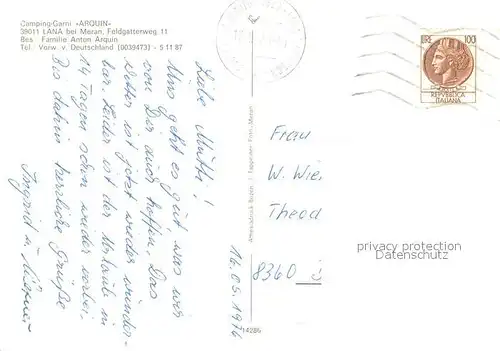 Camping-Garni «ARQUIN»
39011 LANA bei Meran, Feldgatterweg 11
Bes. Familie Anton Arquin
Tel. Vorw. v. Deutschland (0039473) - 5 11 87
Liebe Mutti!
Uns geht es gut was wir
von Dir auch hoffen. Das
Wetter ist jetzt wieder wunder-
bar. Leider ist der Urlaub in
14 Tagen schon wieder vorbei.
Bis dahin herzliche Grüße
Ingrid u.
16.05.1976
14286
LIRE 100
REPUBBLICA
ITALIANA
Frau
W. Wie
Theod
8360
privacy protection
Datenschutz